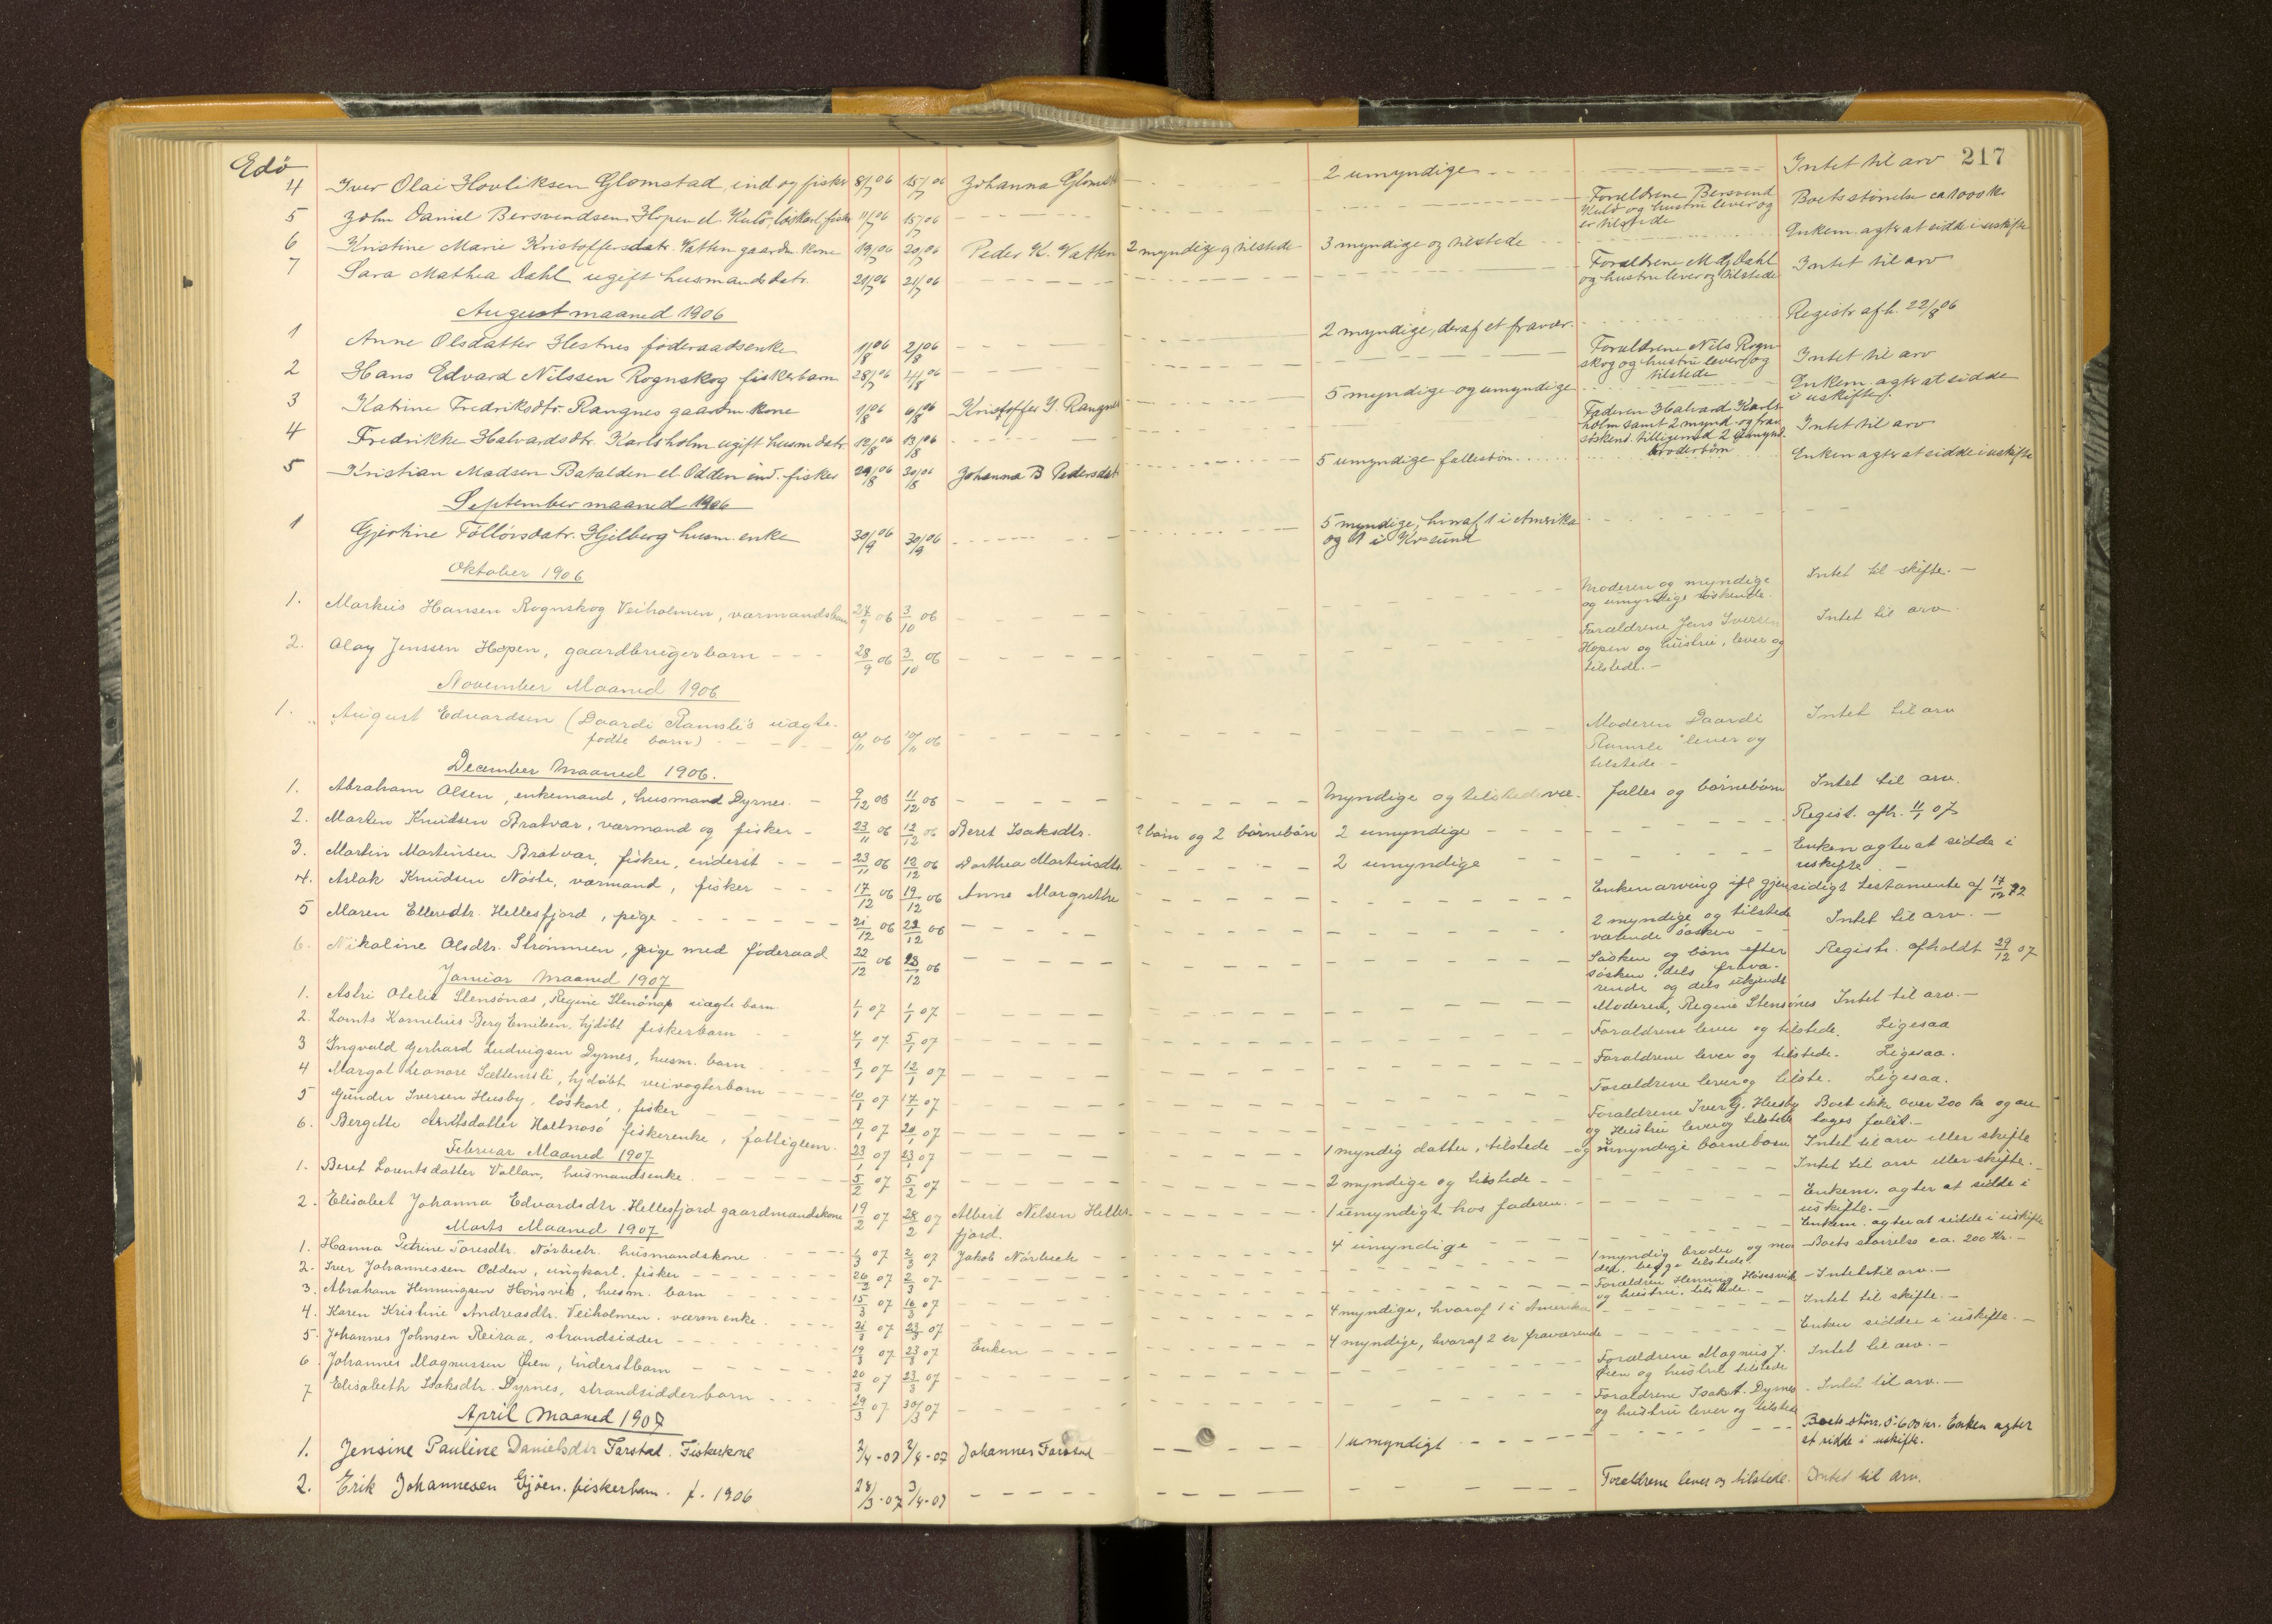 Edö
217
4 Iver Olai Hovliksen Glomstad, ind og fisker 8/7 06 15/7 06 Johanna Glomst 2 umyndige Intet til arv
5 John Daniel Bersvendsen Hopen el. Kulö, löskarl, fisker 11/7 06 15/7 06 Forældrene Bersvend Boets størrelse ca 1000 kr
Kulö og hustru lever og
er tilstede
6 Kristine Marie Kristoffersdatr. Vatten gaardm kone 19/7 06 20/7 06 Peder K. Vatten 2 myndige og tilstede 3 myndige og tilstede Enkem. agter at sidde i uskifte
7 Sara Mathea Dahl ugift husmandsdatr. 20/7 06 21/7 06 Forældrene M. Dahl Intet til arv
og hustru lever og tilstede
August maaned 1906
1 Anne Olsdatter Hestnes föderaadsenke 1/8 06 2/8 06 2 myndige, deraf et fravær. Registr afh. 22/8 06
2 Hans Edvard Nilssen Rognskog fiskerbarn 28/7 06 4/8 06 Forældrene Nils Rogn Intet til arv
skog og hustru lever og
tilstede
3 Katrine Fredriksdtr. Rangnes gaardm kone 1/8 06 6/8 06 Kristoffer I. Rangnes 5 myndige og umyndige Enkem. agter at sidde
i uskifte
4 Fredrikke Halvardsdtr. Karlsholm ugift husm datr 12/8 06 13/8 06 Faderen Halvard Karls Intet til arv
holm samt 2 mynd og frav
söskend. tilligemed 2 umynd.
broderbörn
5 Kristian Madsen Batalden el Odden ind. fisker 29/8 06 30/8 06 Johanna B Pedersdat 5 umyndige fællesbörn Enken agter at sidde i uskifte
September maaned 1906
1 Gjertine Föllörsdatr. Hjelberg husm. enke 30/9 06 30/9 06 5 myndige, hvoraf 1 i Amerika
og 1 i Kr.sund
Oktober 1906
1. Markus Hansen Rognskog Veiholmen, værmandsbarn 27/9 06 3/10 06 Moderen og myndige Intet til skifte.
og umyndige söskende.
2. Olay Jenssen Hopen, gaardbrugerbarn 28/9 06 3/10 06 Forældrene Jens Iversen Intet til arv
Hopen og hustru, lever og
tilstede.
November Maaned 1906
1. August Edvardsen (Daardi Ramsli's uægte- 06 10/11 06 Moderen Daardi Intet til arv
fødte barn) Ramsli lever og
tilstede
December Maaned 1906.
1. Abraham Olsen, enkemand, husmand Dyrnes. 9/12 06 11/12 06 Myndige og tilstedevæ- fælles og börnebörn Intet til arv.
2. Morten Knudsen Bratvær, værmand og fisker 23/11 06 12/12 06 Beret Isaksdtr. 2 börn og 2 börnebörn 2 umyndige Regist. afh. 11/1 07
3. Martin Martinsen Bratvær, fisker, inderst 23/11 06 12/12 06 Dorthea Martinsdtr 2 umyndige Enken agter at sidde i
uskifte
4. Aslak Knudsen Nöste, værmand, fisker 17/12 06 19/12 06 Anne Margrethe Enken arving ifl gjensidigt testamente af 17/12 92
5 Maren Ellevsdtr. Hellesfjord, pige 21/12 06 22/12 06 2 myndige og tilstede Intet til arv.
værende søsken
6. Nikoline Olsdtr. Strömmen, pige med föderaad 22/12 06 28/12 06 Søsken og börn efter Registr. afholdt 29/12 07
søsken, dels fravæ-
rende og dels ukjendt
Januar Maaned 1907
1. Astri Otelie Stensönes, Regine Stensönes uægte barn 1/1 07 1/1 07 Moderen, Regine Stensönes Intet til arv.
2. Lornts Kornelius Berg Emilsen, hjdöbt fiskerbarn 4/1 07 5/1 07 Forældrene lever og tilstede. Ligesaa
3 Ingvald Gerhard Ludvigsen Dyrnes, husm. barn 9/1 07 12/1 07 Forældrene lever og tilstede. Ligesaa.
4 Margot Leonore Sættemsli, hjdöbt veivogterbarn 10/1 07 17/1 07 Forældrene lever og tilste. Ligesaa.
5 Gunder Iversen Husby, löskarl, fisker 19/1 07 20/1 07 Forældrene Iver G. Husby Boet ikke over 200 kr og an
og Hustru lever og tilstede tages falit.
6. Bergitte Arntsdatter Holtnosö fiskerenke, fattiglem. 23/1 07 23/1 07 1 myndig datter, tilstede og umyndige börnebörn Intet til arv eller skifte
Februar Maaned 1907
1. Beret Lorentsdatter Vollan, husmandsenke. 5/2 07 5/2 07 2 myndige og tilstede Intet til arv eller skifte.
2. Elisabet Johanna Edvardsdtr. Hellesfjord gaardmandskone 19/2 07 28/2 07 Albert Nilsen Helles- 1 umyndigt hos faderen. Enkem. agter at sidde i
fjord. uskifte.
Marts Maaned 1907
1. Hanna Petrine Toresdtr. Nörbech. husmandskone 1/3 07 2/3 07 Jakob Nörbech 4 umyndige Enkem. agter at sidde i uskifte
2. Iver Johannessen Odden, ungkarl. fisker 07 2/3 07 1 myndig broder og mo- Boets størrelse ca. 200 Kr.
der. begge tilstede
3. Abraham Henningsen Hönsvik, husm. barn 15/3 07 16/3 07 Forældren Henning Hönsvik Intet til arv.
og hustru. tilstede.
4. Karen Kristine Andreasdtr. Veiholmen. værm enke. 21/3 07 23/3 07 4 myndige, hvoraf 1 i Amerika Intet til skifte.
5. Johannes Johnsen Reiraa, strandsidder 19/3 07 23/3 07 Enken 4 myndige, hvoraf 2 er fraværende Enken sidder i uskifte.
6. Johannes Magnussen Øien, inderstbarn 20/3 07 23/3 07 Forældrene Magnus J. Intet til arv.
Øien og hustru tilstede
7 Elisabeth Isaksdtr. Dyrnes, strandsidderbarn 29/3 07 30/3 07 Forældrene Isak A. Dyrnes Intet til arv.
og hustru lever og tilstede
April Maaned 1907
1. Jensine Pauline Danielsdtr Tarstad. Fiskerkone 2/4-07 2/4-07 Johannes Tarstad 1 umyndigt Boets størr. 5-600 kr. Enken agter
at sidde i uskifte.
2. Erik Johannesen Gjöen. fiskerbarn. f. 1906 28/3-07 3/4-07 Forældrene lever og tilstede. Intet til arv.